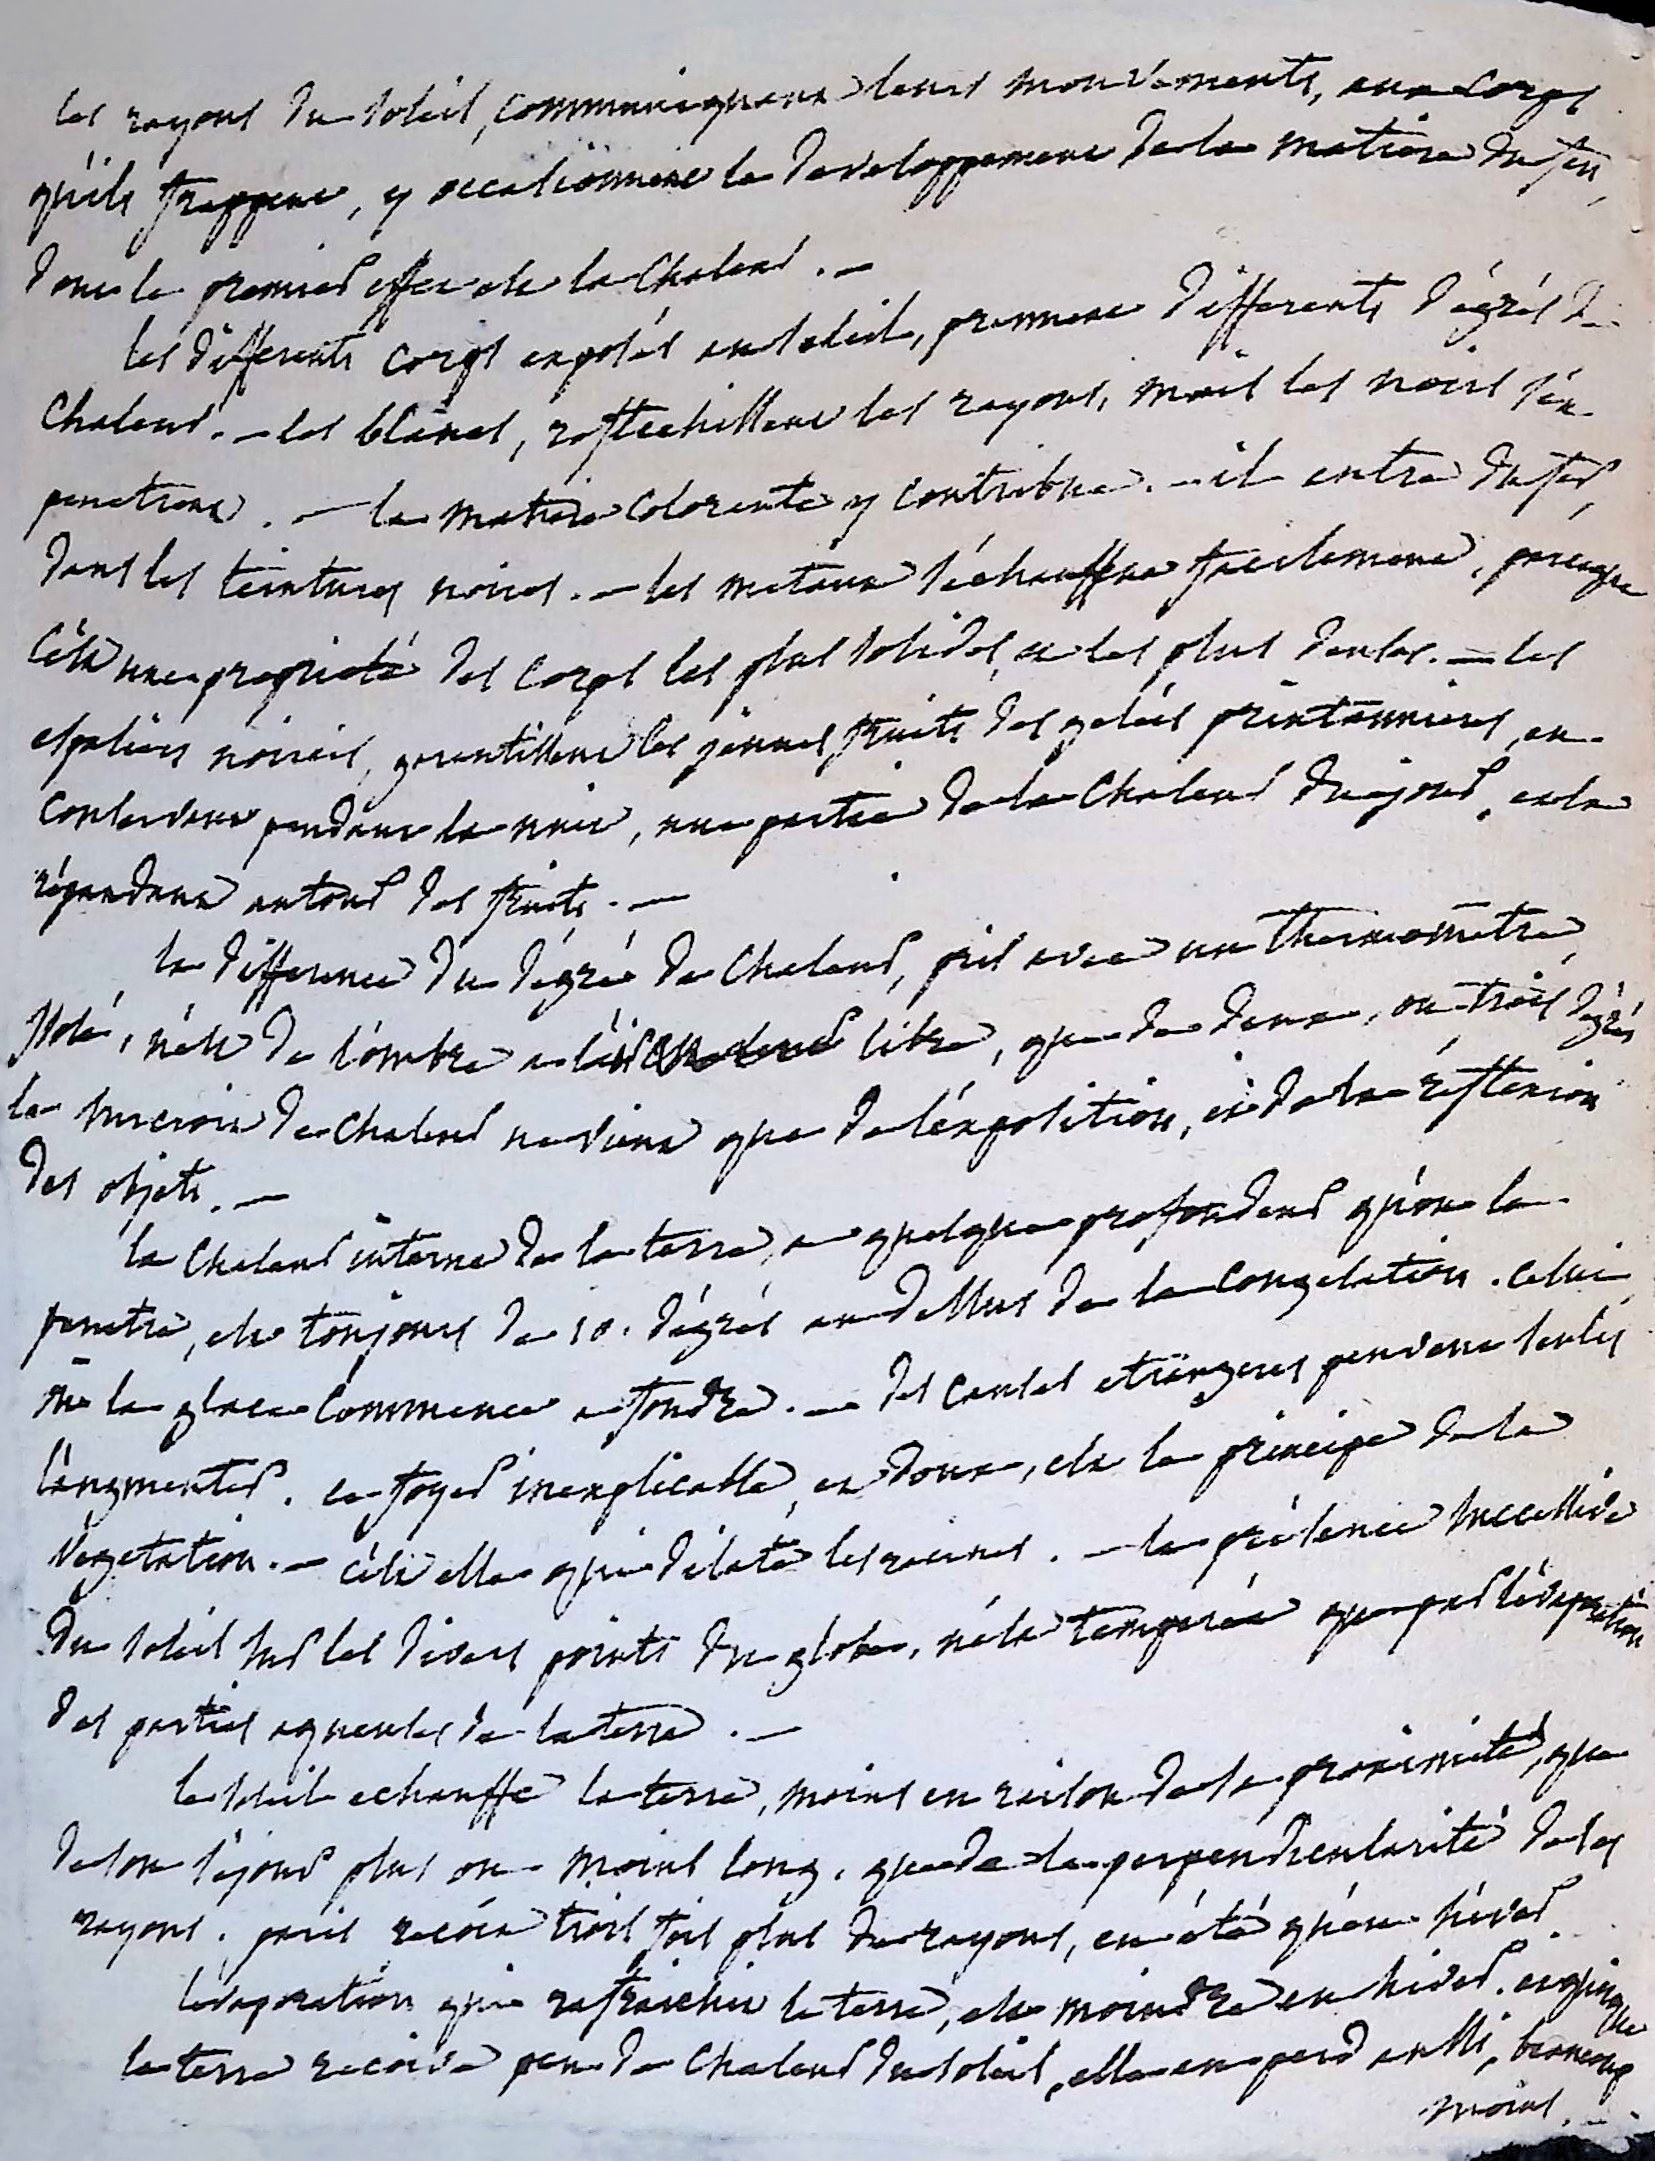 les rayons du soleil, communiquant leurs mouvements, aux corps
qu'ils frappent, y occasionnent le developpement de la matiere du feu,
dont le premier effet est la chaleur. —
les differents corps exposés au soleil, prennent differents dégrés de
chaleur. — les blancs, reflechissent les rayons, mais les noirs s'en
penetrent. — la matiere colorente y contribue. — il entre du fer,
dans les teintures noires. — les metaux s'échauffent facilement, parceque
c'est une proprieté des corps les plus solides, et les plus denses. — les
espaliers noircis, garentissent les jeunes fruits des gelées printannieres, en
conservant pendant la nuit, une partie de la chaleur du jour, et la
répandant autour des fruits. —
la difference du dégré de chaleur, pris avec un thermométre
isolé, n'est de l'ombre a libre, que de deux, ou trois dégrés
le surcroit de chaleur ne vient que de l'éxposition, et de la réflexion
des objets. —
la chaleur interne de la terre, a quelque profondeur qu'on la
penetre, est toujours de 10. dégrés au dessus de la congelation. celui
ou la glace commence a fondre. — des causes etrangeres peuvent seules
l'augmenter. ce foyer inexplicable, et doux, est le principe de la
vegetation. — c'est elle qui dilate les racines. — la présence successive
du soleil sur les divers points du globe, n'est temperée que par l'évaporation
des parties aqueuses de la terre. —
le soleil echauffe la terre, moins en raison de sa proximité, que
de son séjour plus ou moins long, que de la perpendicularité de ses
rayons. paris recoit trois fois plus de rayons, en été qu'en hiver.
l'evaporation qui rafraichit la terre, est moindre en hiver. et quoique
la terre recoive peu de chaleur du soleil, elle en perd aussi, beaucoup
moins. —